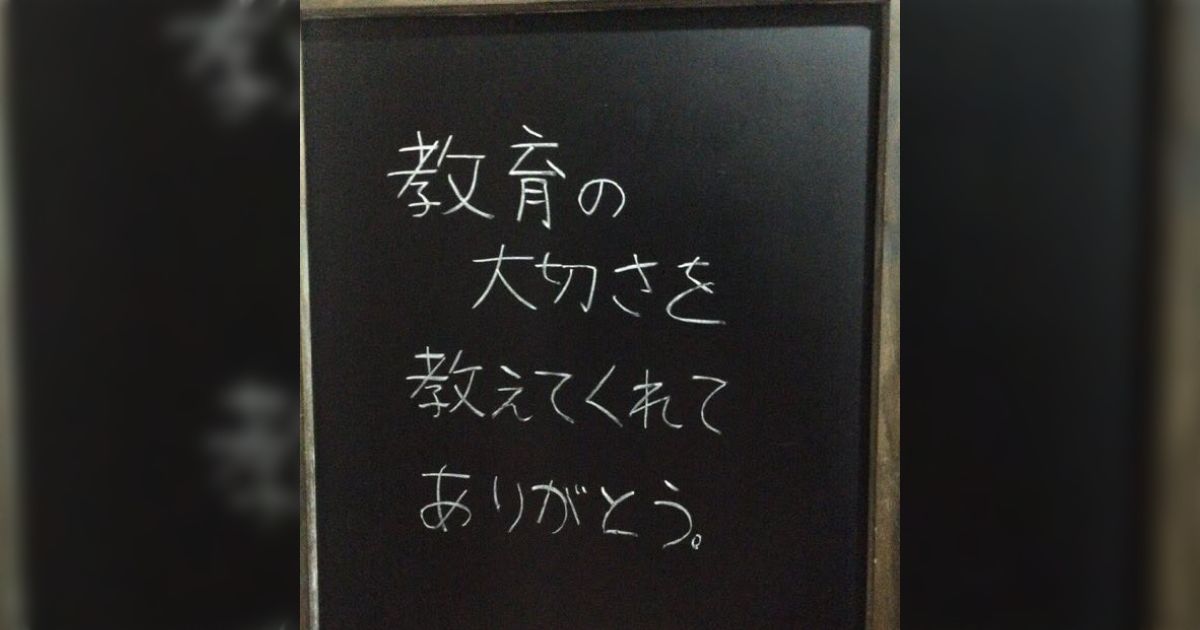 教育の
大切さを
教えてくれて
ありがとう。